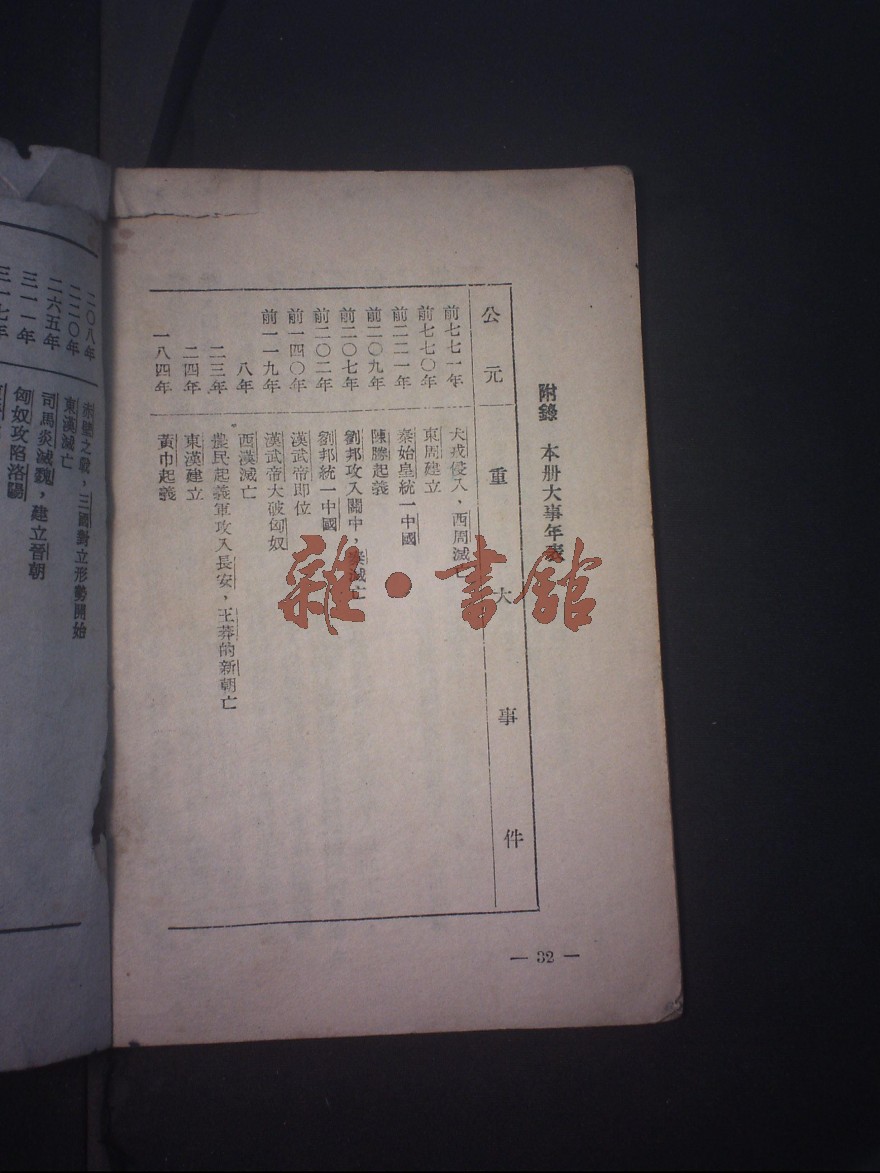 附錄 本册大事年表
公元 重大事件
前七七一年 犬戎侵入，西周滅亡
前七七〇年 東周建立
前二二一年 秦始皇統一中國
前二〇九年 陳勝起義
前二〇七年 劉邦攻入關中，秦滅亡
前二〇二年 劉邦統一中國
前一四〇年 漢武帝即位
前一一九年 漢武帝大破匈奴
八年 西漢滅亡
二三年 農民起義軍攻入長安，王莽的新朝亡
二四年 東漢建立
一八四年 黃巾起義
— 32 —
二〇八年 赤壁之戰，三國對立形勢開始
二二〇年 東漢滅亡
二六五年 司馬炎滅魏，建立晉朝
三一一年 匈奴攻陷洛陽
三一七年
雜·書館